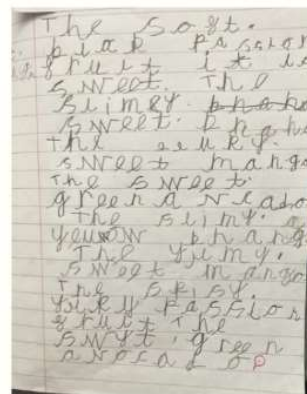 The soft.
pink passion
fruit it is
sweet. The
slimey.
sweet.
the
sweet mango
The sweet.
green avcado
The slimy.
yeuow
The yumy.
sweet mango
The
yiky passion
fruit The
swyt. green
avocado